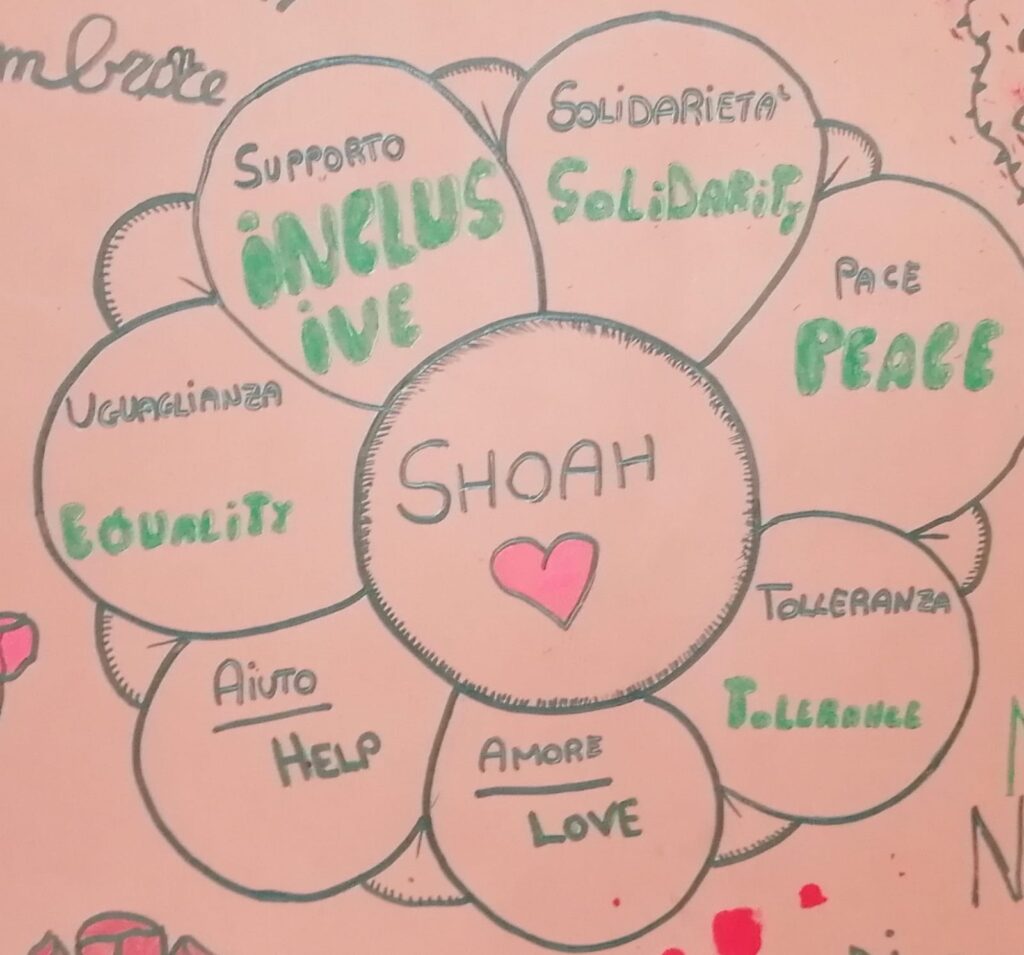 SUPPORTO
iNCLUS
iVE
SOLiDARiETA'
SOLiDARiTy
PACE
PEACE
UGUAGLiANZA
EQUALiTY
SHOAH
TOLLERANZA
TOLERANCE
AiUTO
HELP
AMORE
LOVE